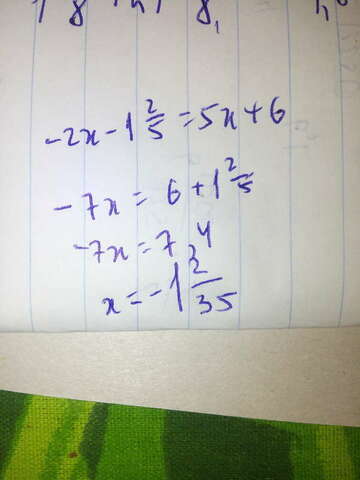 -2x - 1 2/5 = 5x + 6
-7x = 6 + 1 2/5
-7x = 7,4
x = -1 2/35